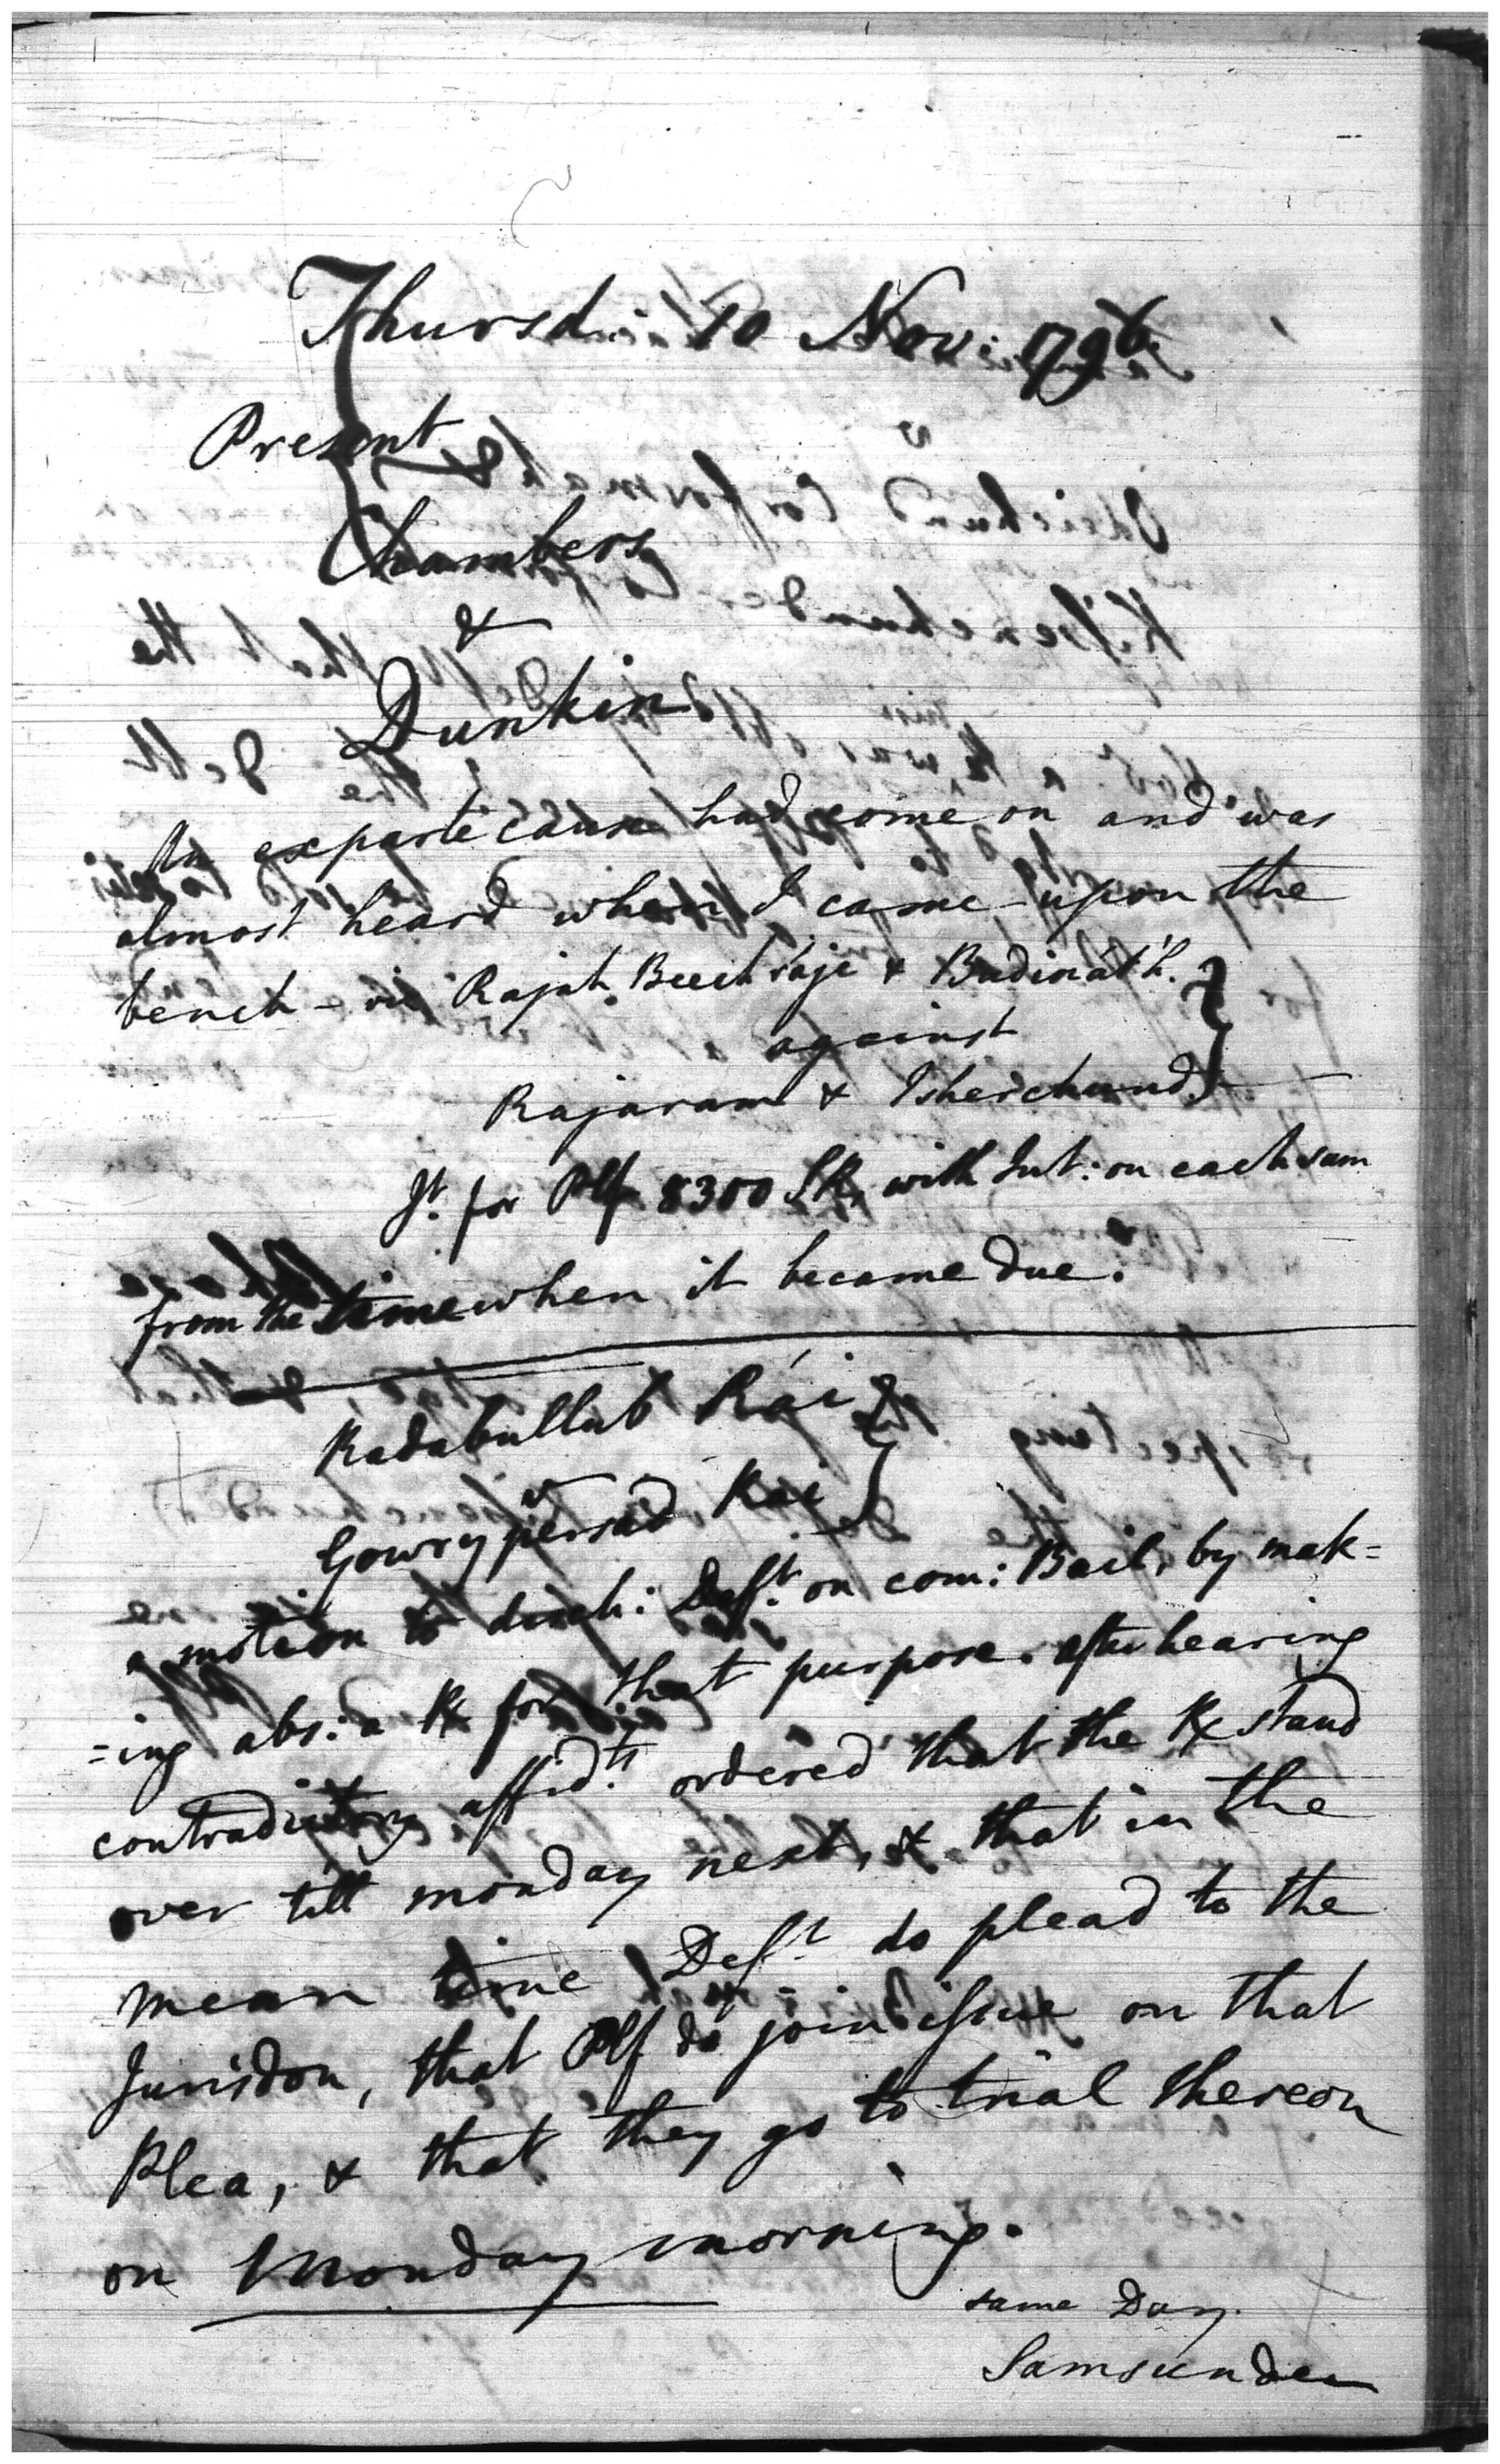 Thursd: 10 Nov: 1796
Present
Chambers
&
Dunkin
An exparte cause had come on and was
almost heard when I came upon the
bench - viz Rajah. & Budináth.
against
Rajaram & Isherchund.
Jt. for Plf 8300 SR, with Int: on each sum
from the time when it became due.
Radabullub Rái
v
Gowrypersad Rai
a motion to disch: Deft. on com: Bail, by mak=
=ing abs: a R for that purpose. after hearing
contradictory affidts. ordered that the R stand
over till monday next, & that in the
mean time Deft do plead to the
Jurisdon, that Plf do join issue on that
Plea, & that they go to trial thereon
on Monday morning.
same Day.
Samsunder